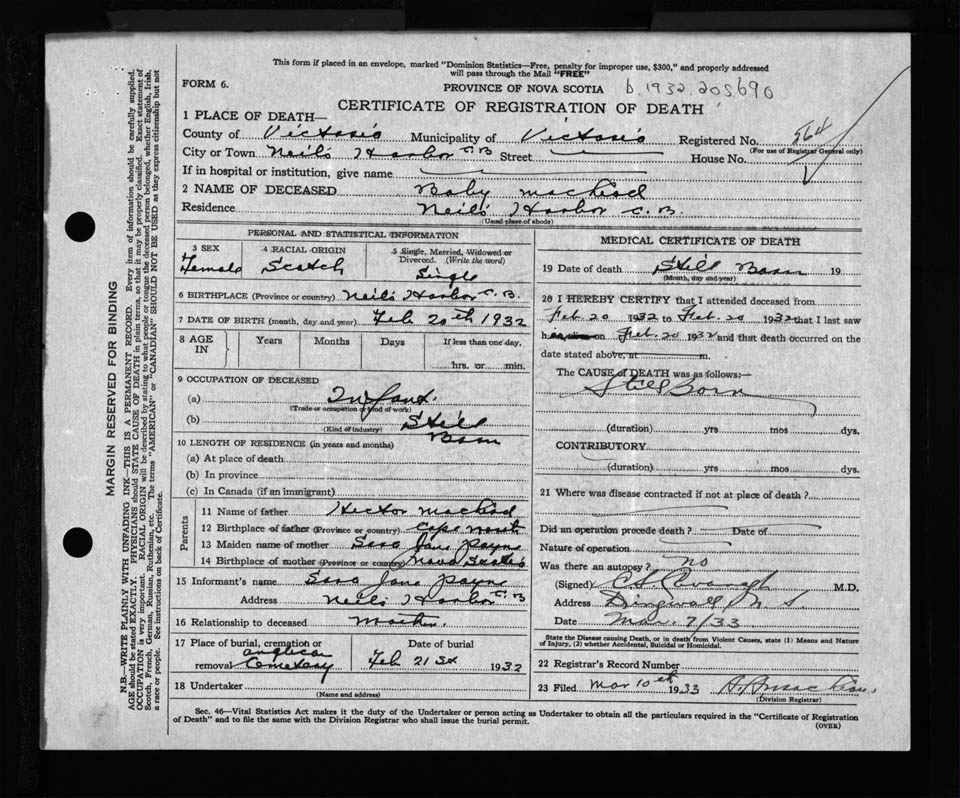 This form if placed in an envelope, marked "Dominion Statistics—Free, penalty for improper use, $300," and properly addressed
will pass through the Mail "FREE"
FORM 6.
PROVINCE OF NOVA SCOTIA b.1932.205690
CERTIFICATE OF REGISTRATION OF DEATH
1 PLACE OF DEATH—
County of Victoria Municipality of Victoria Registered No. 564
(For use of Registrar General only)
City or Town Neil's Harbor C.B Street House No.
If in hospital or institution, give name
2 NAME OF DECEASED Baby MacLeod
Residence Neil's Harbor C.B.
(Usual place of abode)
PERSONAL AND STATISTICAL INFORMATION
3 SEX 4 RACIAL ORIGIN 5 Single, Married, Widowed or
Divorced. (Write the word)
Female Scotch Single
6 BIRTHPLACE (Province or country) Neil's Harbor C.B.
7 DATE OF BIRTH (month, day and year) Feb 20th 1932
8 AGE IN Years Months Days If less than one day,
hrs. or min.
9 OCCUPATION OF DECEASED
(a) Infant.
(Trade or occupation or kind of work)
(b) Still Born
(Kind of industry)
10 LENGTH OF RESIDENCE (in years and months)
(a) At place of death
(b) In province
(c) In Canada (if an immigrant)
Parents
11 Name of father Hector MacLeod
12 Birthplace of father (Province or country) Cape North
13 Maiden name of mother Sara Jane Payne
14 Birthplace of mother (Province or country) Nova Scotia
15 Informant's name Sara Jane Payne
Address Neil's Harbor C.B
16 Relationship to deceased Mother
17 Place of burial, cremation or Date of burial
removal Anglican Cemetery Feb 21st 1932
18 Undertaker
(Name and address)
MEDICAL CERTIFICATE OF DEATH
19 Date of death Still Born 19
(Month, day and year)
20 I HEREBY CERTIFY that I attended deceased from
Feb. 20 1932 to Feb. 20 1932 that I last saw
h on Feb. 20 1932 and that death occurred on the
date stated above, at m.
The CAUSE of DEATH was as follows:—
Still Born
(duration) yrs mos dys.
CONTRIBUTORY
(duration) yrs mos dys.
21 Where was disease contracted if not at place of death?
Did an operation precede death? Date of
Nature of operation
Was there an autopsy? no
(Signed) M.D.
Address Dingwall N.S.
Date Mar. 7/33
State the Disease causing Death, or in death from Violent Causes, state (1) Means and Nature
of Injury, (2) whether Accidental, Suicidal or Homicidal.
22 Registrar's Record Number
23 Filed Mar 10th 1933
(Division Registrar)
Sec. 46—Vital Statistics Act makes it the duty of the Undertaker or person acting as Undertaker to obtain all the particulars required in the "Certificate of Registration
of Death" and to file the same with the Division Registrar who shall issue the burial permit.
(OVER)
MARGIN RESERVED FOR BINDING
N.B.—WRITE PLAINLY WITH UNFADING INK—THIS IS A PERMANENT RECORD. Every item of information should be carefully supplied.
AGE should be stated EXACTLY. PHYSICIANS should STATE CAUSE OF DEATH in plain terms, so that it may be properly classified. Exact statement of
OCCUPATION is very important. RACIAL ORIGIN will be described by stating to what people or tongue the deceased person belonged, whether English, Irish,
Scotch, French, German, Russian, Ruthenian, etc. The terms "AMERICAN" or "CANADIAN" SHOULD NOT BE USED as they express citizenship but not
a race or people. See instructions on back of Certificate.